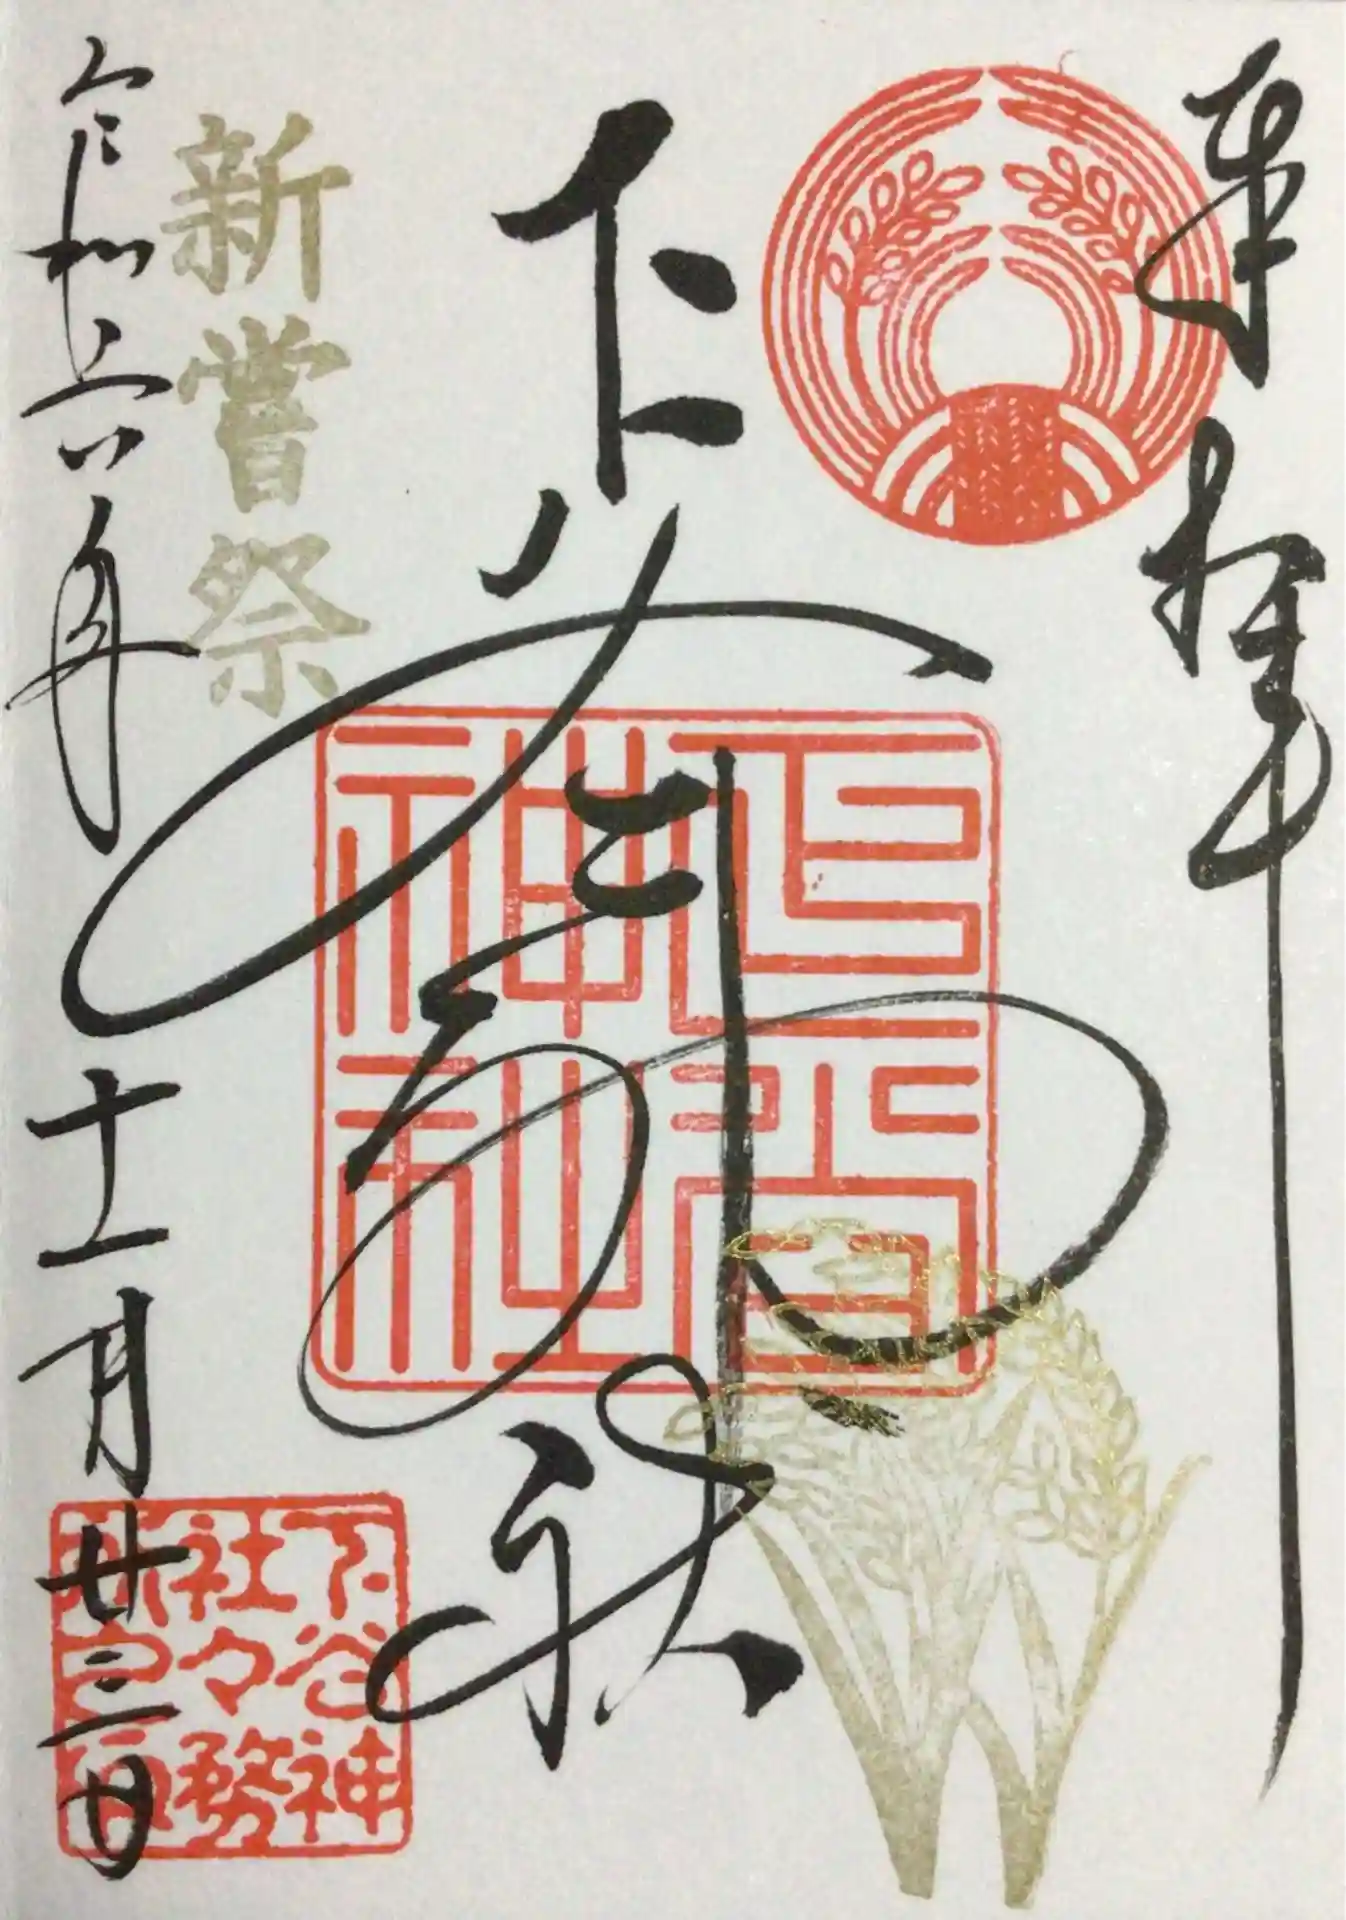 奉拝
下谷神社
下谷神社
新嘗祭
令和六年十一月廿三日
下谷神
社々務
所之印